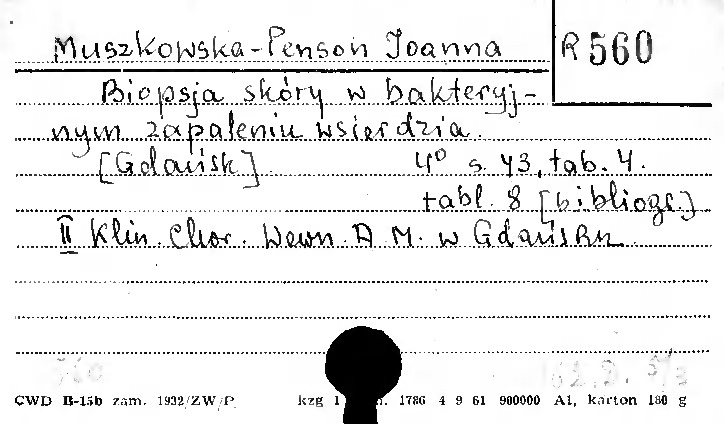 Muszkowska-Penson Joanna
R 560
Biopsja skóry w bakteryj-
nym zapaleniu wsierdzia.
[Gdańsk] 4° s. 43, tab. 4.
tabl. 8 [bibliogr.]
II Klin. Chor. Wewn. A. M. w Gdańsku
560 162.2. 5/3
CWD B-15b zam. 1932/ZW/P. kzg 1 1786 4 9 61 900000 A1, karton 180 g